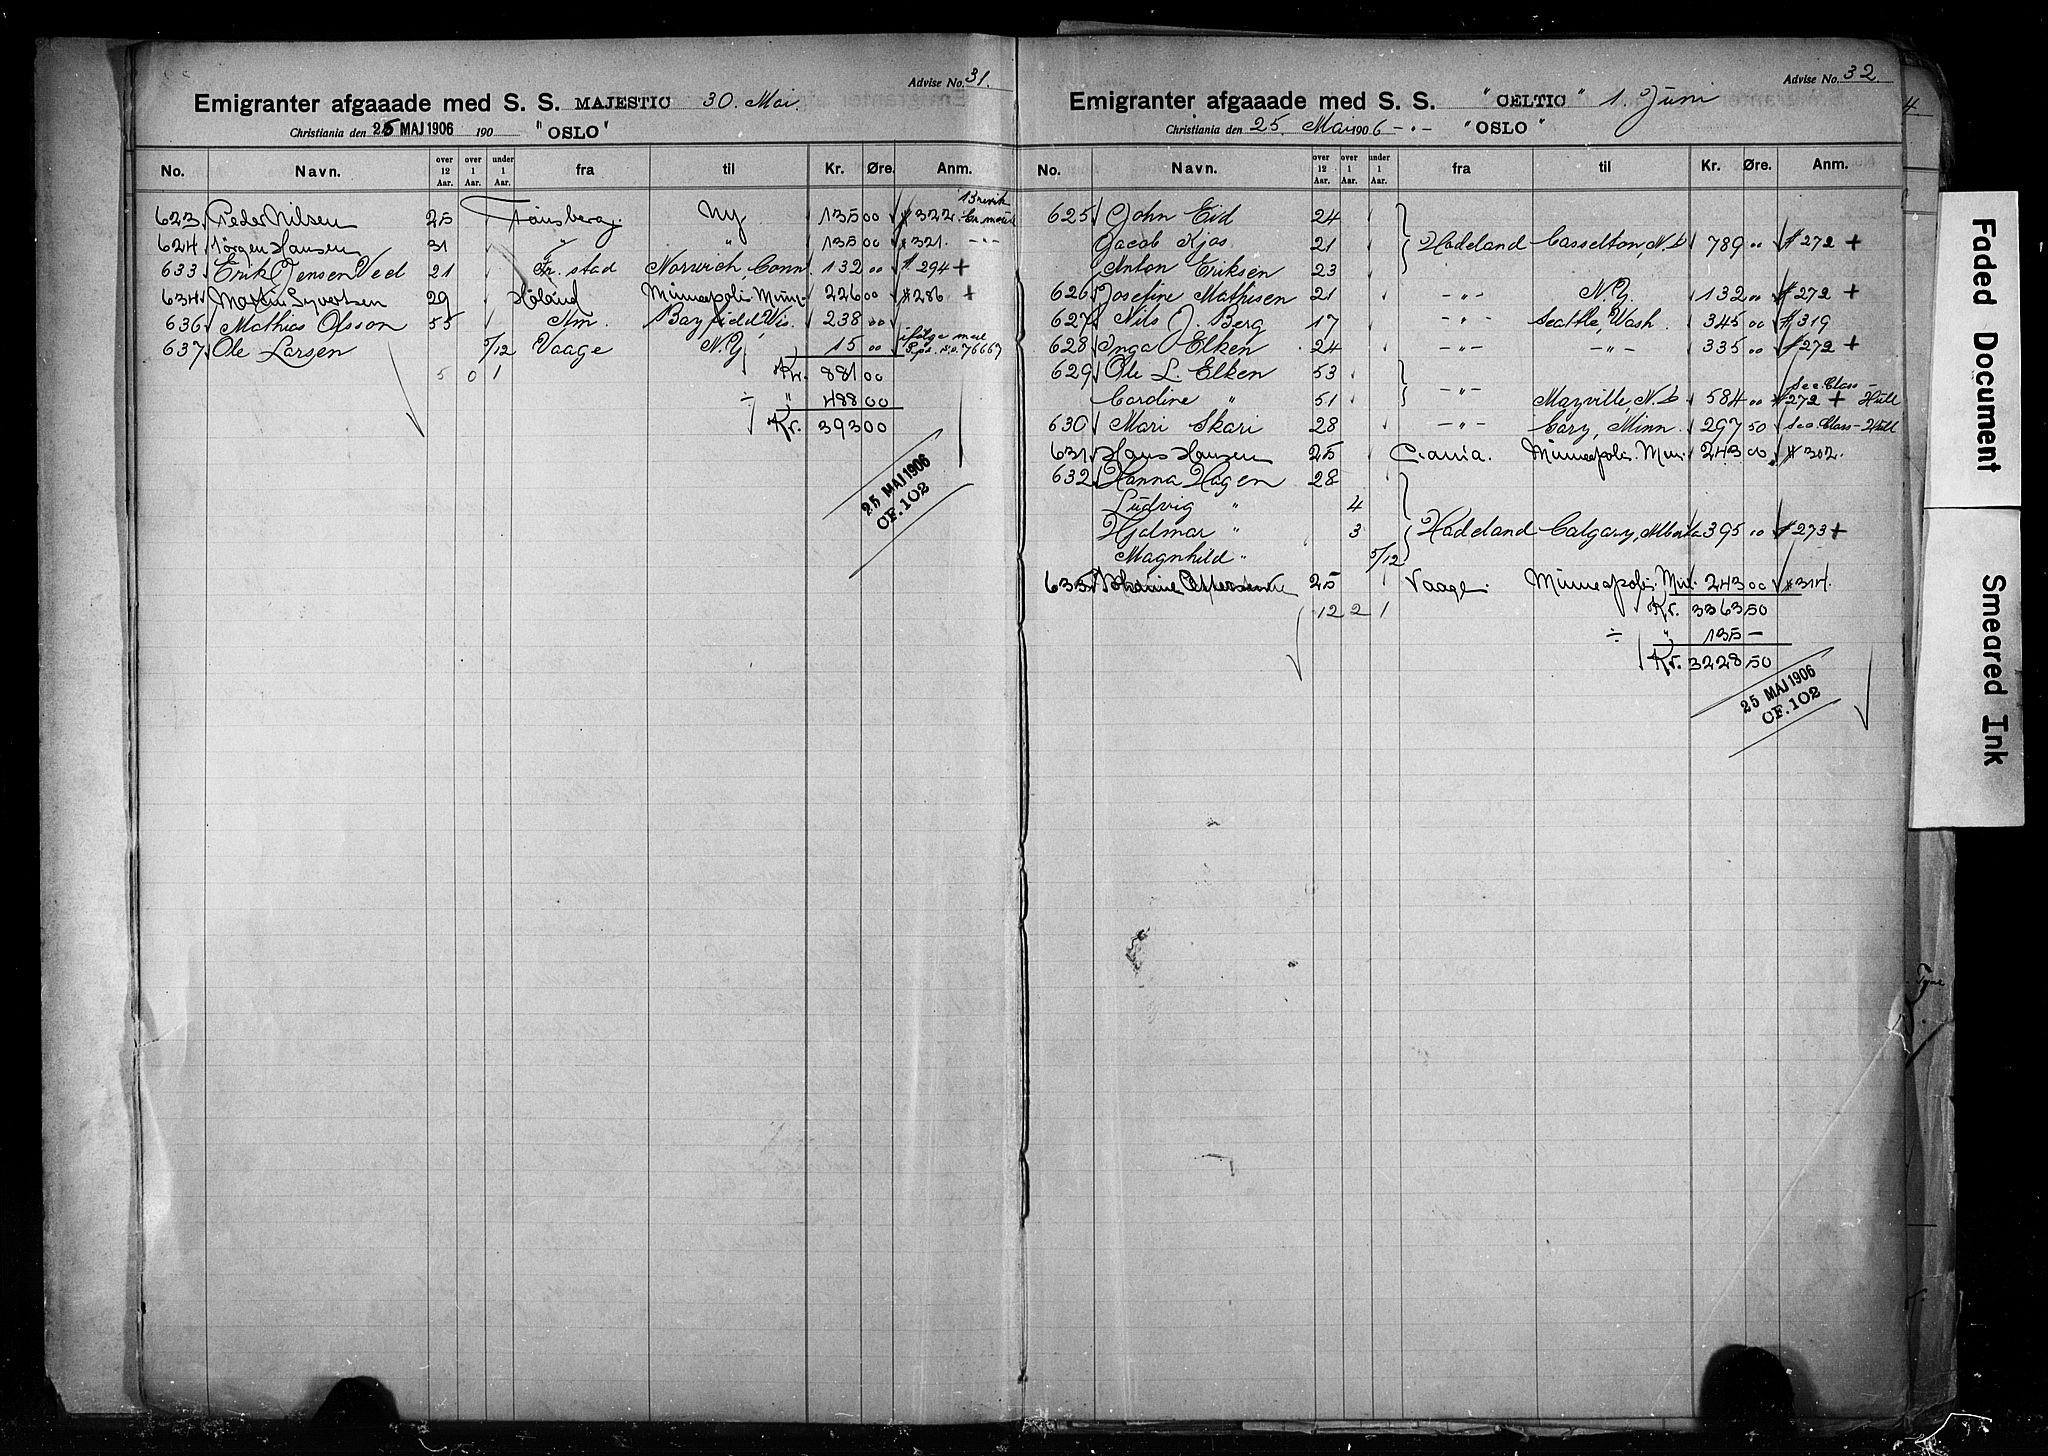 Advise No. 31.
Emigranter afgaaade med S. S. MAJESTIC 30. Mai.
Christiania den 25 MAJ 1906 190 "OSLO"
No. Navn. over 12 Aar. over 1 Aar. under 1 Aar. fra til Kr. Øre. Anm.
623 Peder Nilsen 25 Tønsberg. NY 135 00 #322.
624 Jörgen Hansen 31 " " 135 00 #321. -"-
633 Erik Jensen Ved 21 Fr. stad Norwich Conn 132 00 #294 +
634 Martin Syvertsen 29 Höland Minneapolis Minn. 226 00 #286 +
636 Mathias Olsson 55 Hm. Bayfield, Wis. 238 00
637 Ole Larsen 5/12 Vaage N.Y. 15 00 ifölge med No. 76667
5 0 1 Kr. 881 00
÷ " 488 00
Kr. 393 00
25 MAJ 1906
CF. 102
Advise No. 32
Emigranter afgaaade med S. S. "CELTIC" 1. Juni
Christiania den 25. Mai 1906 -"- "OSLO"
No. Navn. over 12 Aar. over 1 Aar. under 1 Aar. fra til Kr. Øre. Anm.
625 John Eid 24
Jacob Kjos 21 Hadeland Casselton, N.D. 789 " #272 +
Anton Eriksen 23
626 Josefine Mathisen 21 -"- N.Y. 132 00 #272 +
627 Nils J. Berg 17 -"- Seattle, Wash. 345 00 #319
628 Inga Elken 24 -"- -"- 335 00 #272 +
629 Ole L. Elken 53
Cardine " 51 -"- Mayville, N.D. 584 00 #272 + See Class - Hull
630 Mari Skari 28 -"- Cary, Minn. 297 50 See Class - Hull
631 Hans Hansen 25 Crania. Minneapolis. Minn. 243 00 #302.
632 Hanna Hagen 28
Ludvig " 4
Hjalmar " 3 Hadeland Calgary, Alberta 395 00 #273 +
Magnhild " 5/12
633 25 Vaage. Minneapolis. Min. 243 00 #314.
12 2 1 Kr. 3363 50
÷ " 135 -
Kr. 3228,50
25 MAJ 1906
CF. 102
Faded Document
Smeared Ink